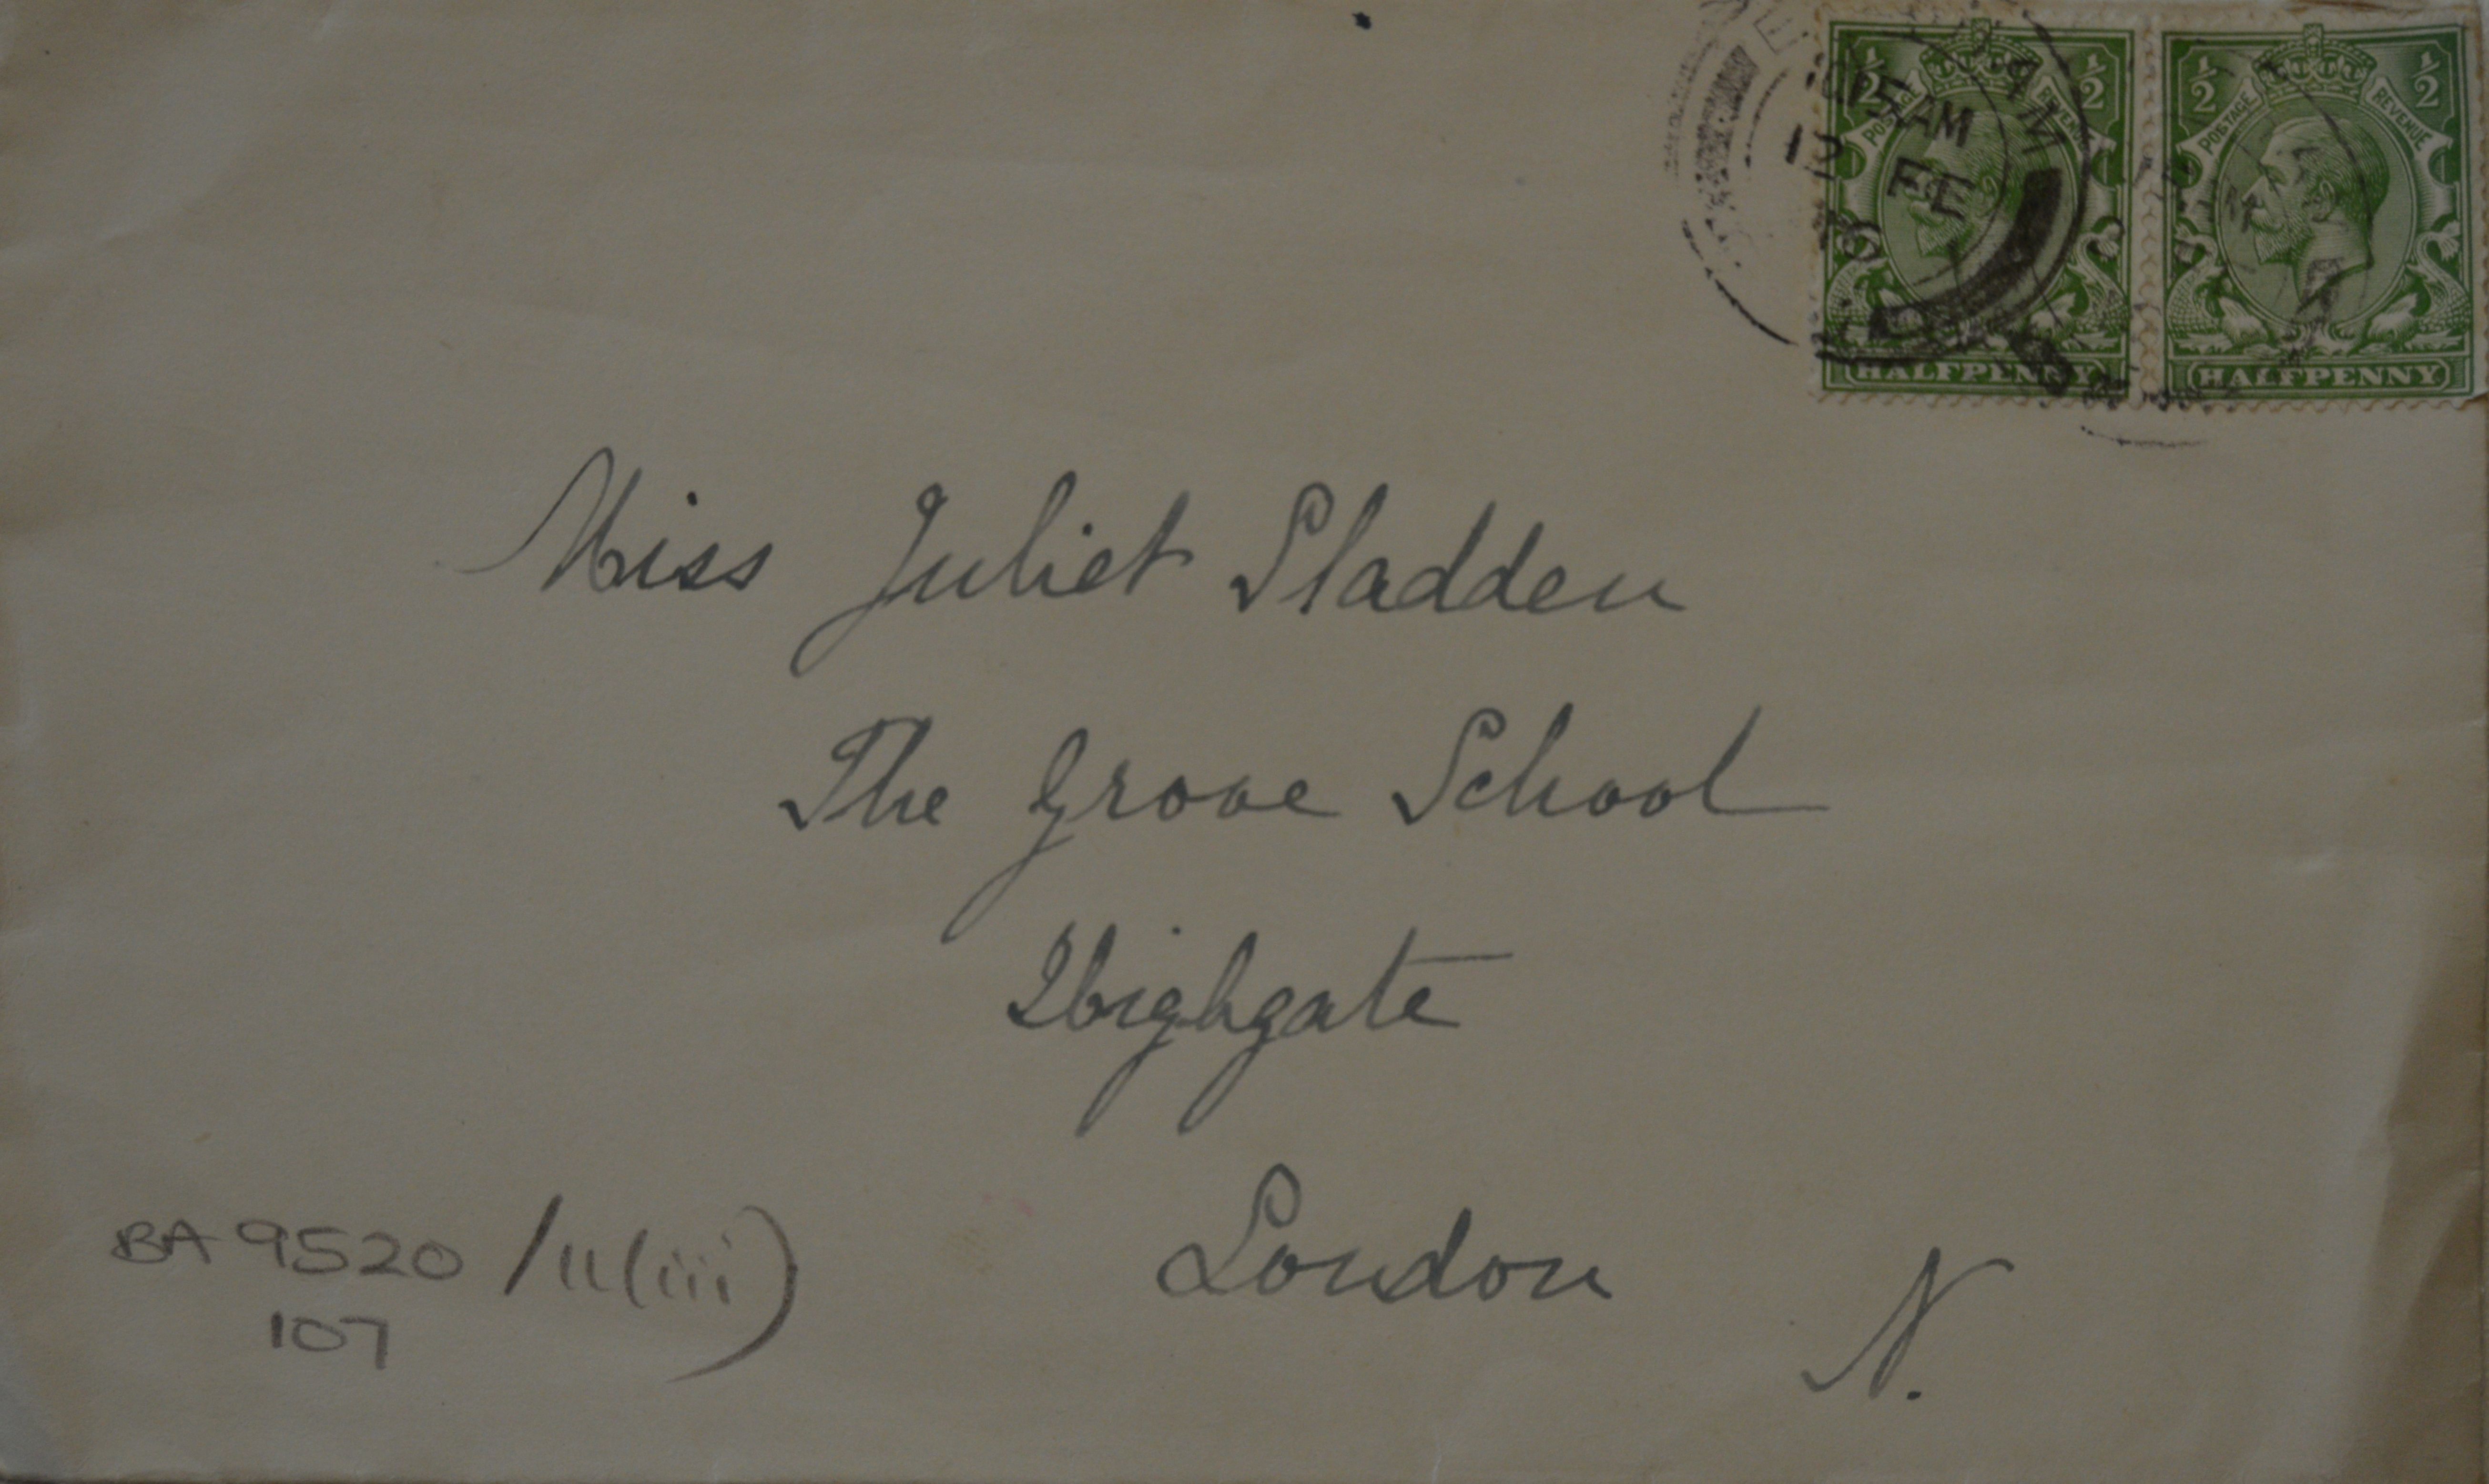 10 15 AM
12 FE
16
½ ½
POSTAGE REVENUE
HALFPENNY
½ ½
POSTAGE REVENUE
HALFPENNY
Miss Juliet Sladden
The Grove School
Highgate
London
N.
BA 9520/11(iii)
107